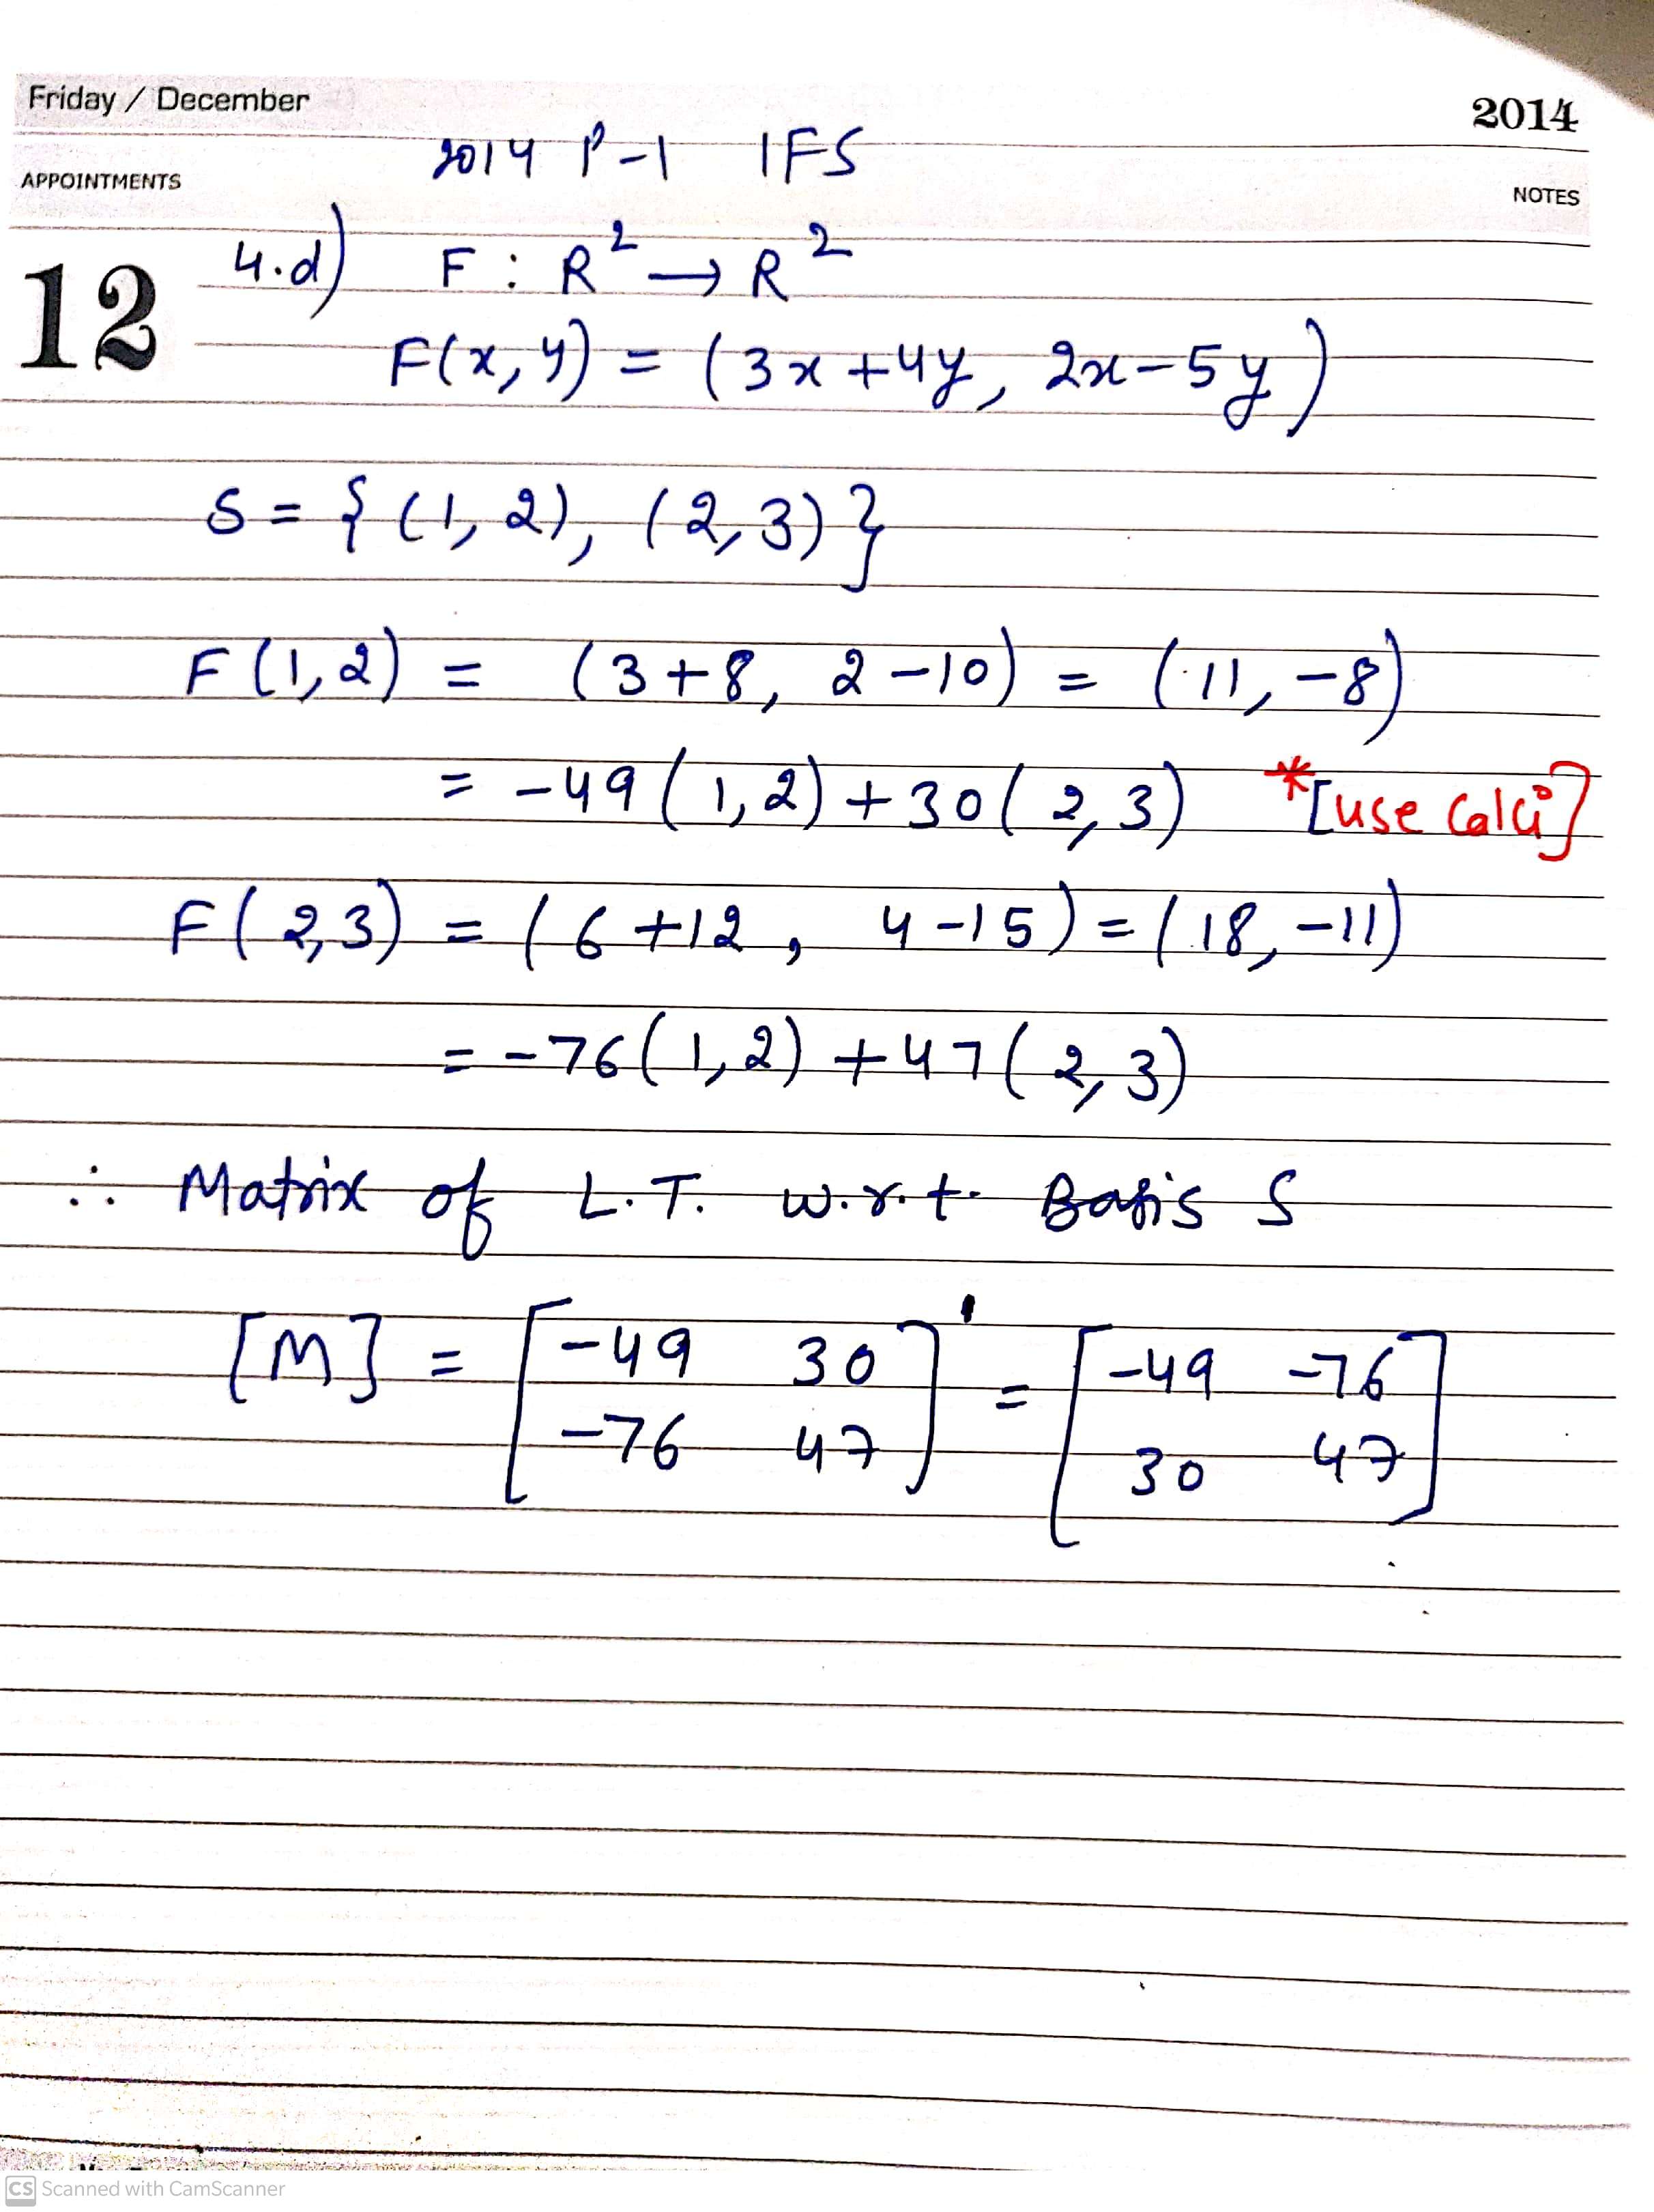 Friday / December
2014
2014 P-1 IFS
APPOINTMENTS
NOTES
12
4.d) F : R² → R²
F(x, y) = (3x + 4y, 2x - 5y)
S = { (1, 2), (2, 3) }
F(1, 2) = (3 + 8, 2 - 10) = (11, -8)
= -49(1, 2) + 30(2, 3) *[use Calci]
F(2, 3) = (6 + 12, 4 - 15) = (18, -11)
= -76(1, 2) + 47(2, 3)
∴ Matrix of L.T. w.r.t. Basis S
[M] = [-49 30; -76 47]' = [-49 -76; 30 47]
CS Scanned with CamScanner